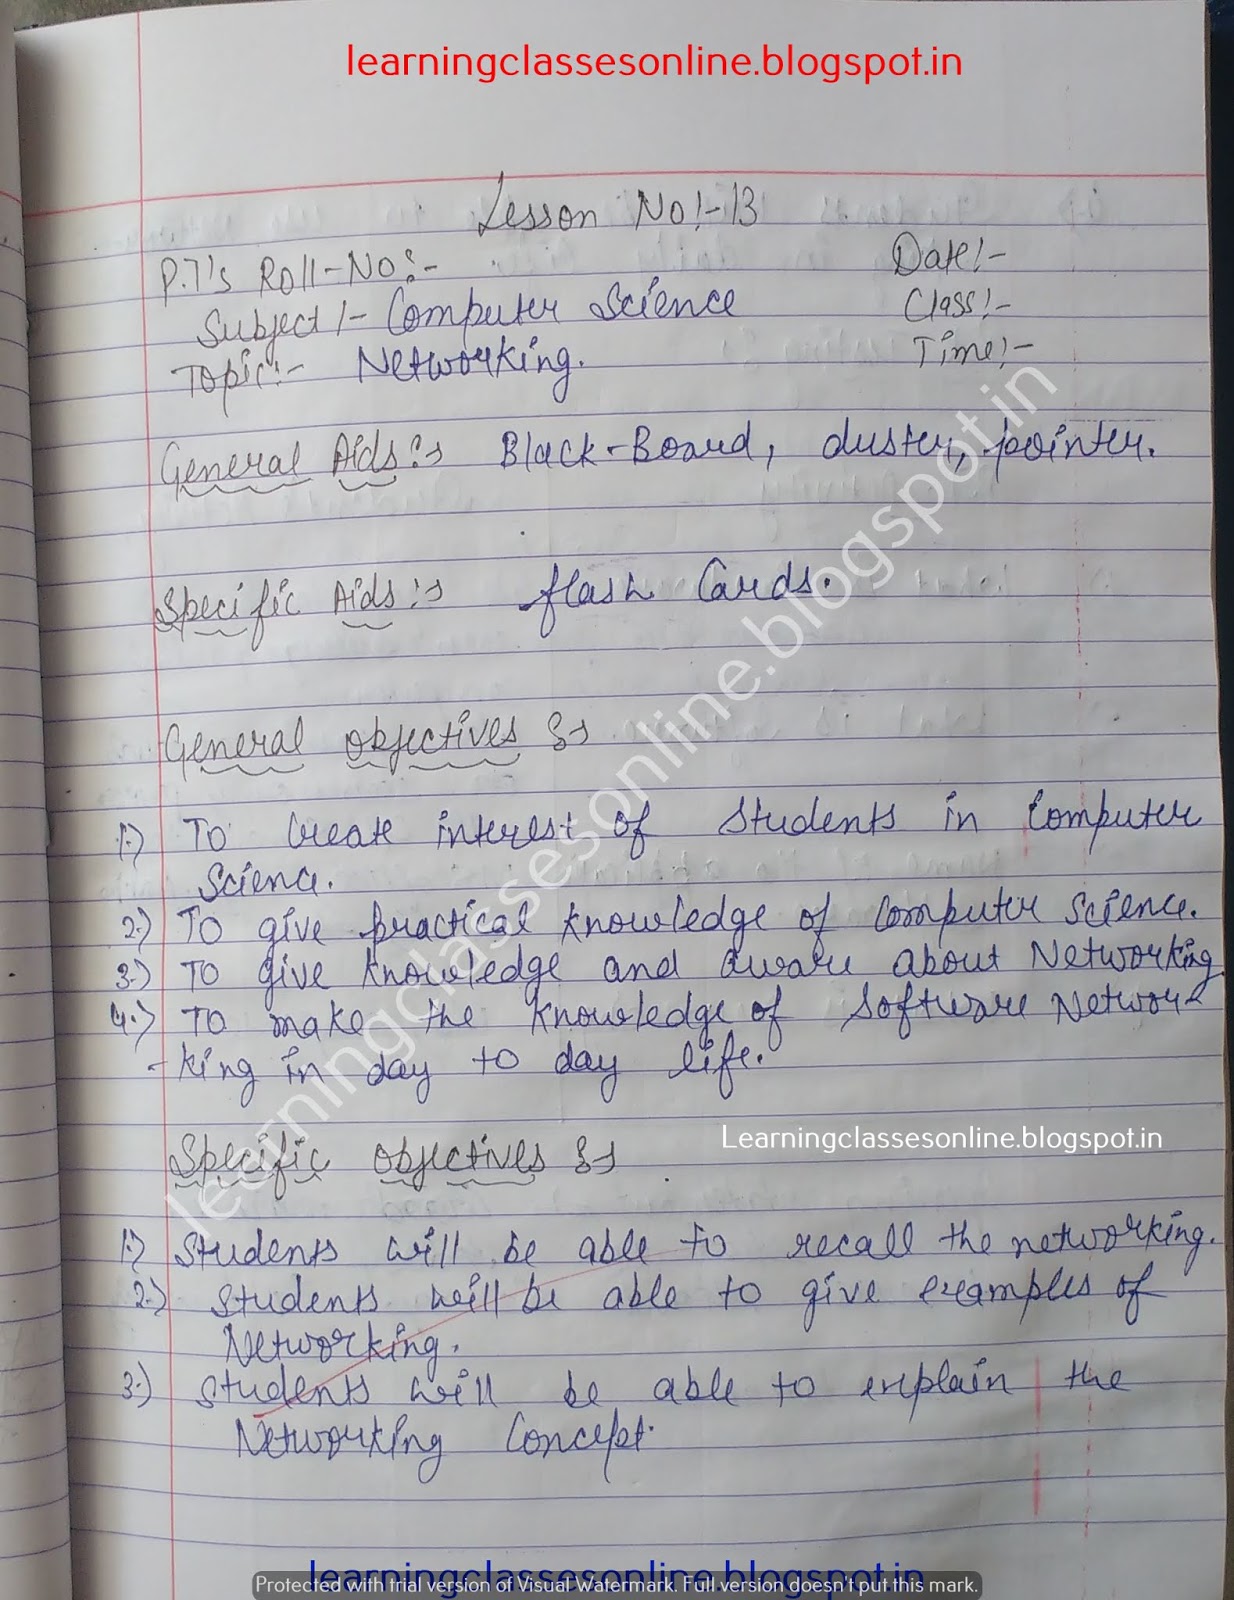 learningclassesonline.blogspot.in
Lesson No:-13
P.T's Roll-No:- Date:-
Subject:- Computer Science Class:-
Topic:- Networking. Time:-
General Aids:- Black-Board, duster, pointer.
Specific Aids:- flash Cards.
General objectives :-
1.) To Create interest of Students in Computer
Science.
2.) To give practical knowledge of Computer Science.
3.) To give knowledge and aware about Networking
4.) To make the knowledge of Software Networ
-king in day to day life.
Specific objectives :-
Learningclassesonline.blogspot.in
1.) Students will be able to recall the networking.
2.) Students will be able to give examples of
Networking.
3.) Students will be able to explain the
Networking Concept.
learningclassesonline.blogspot.in
learningclassesonline.blogspot.in
Protected with trial version of Visual Watermark. Full version doesn't put this mark.